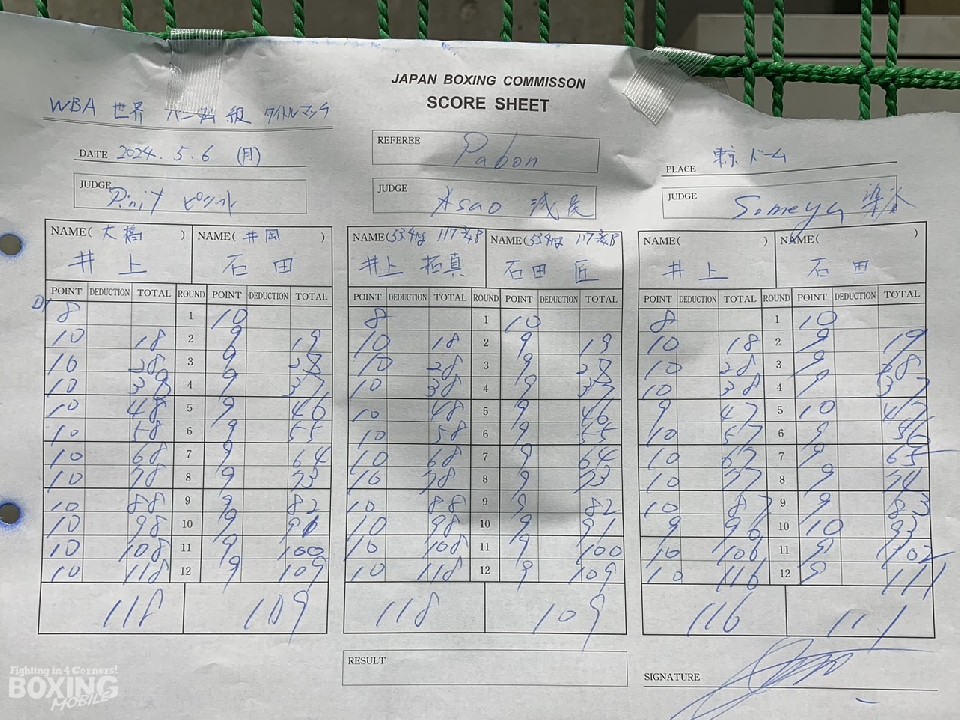 JAPAN BOXING COMMISSON
SCORE SHEET
WBA 世界 バンタム級 タイトルマッチ
DATE 2024.5.6 (月)
REFEREE Pabon
PLACE 東京ドーム
JUDGE Pinit ピニット
JUDGE Asao 浅尾
JUDGE Someya 染谷
NAME(大橋) NAME(井岡) NAME(53.4kg 117 3/4 NAME(53.4kg 117 3/4 NAME( ) NAME( )
井上 石田 井上 拓真 石田 匠 井上 石田
POINT DEDUCTION TOTAL ROUND POINT DEDUCTION TOTAL POINT DEDUCTION TOTAL ROUND POINT DEDUCTION TOTAL POINT DEDUCTION TOTAL ROUND POINT DEDUCTION TOTAL
8 1 10 8 1 10 8 1 10
10 18 2 9 19 10 18 2 9 19 10 18 2 9 19
10 28 3 9 28 10 28 3 9 28 10 28 3 9 28
10 38 4 9 37 10 38 4 9 37 10 38 4 9 37
10 48 5 9 46 10 48 5 9 46 9 47 5 10 47
10 58 6 9 55 10 58 6 9 55 10 57 6 9 56
10 68 7 9 64 10 68 7 9 64 10 67 7 9 65
10 78 8 9 73 10 78 8 9 73 10 77 8 9 74
10 88 9 9 82 10 88 9 9 82 10 87 9 9 83
10 98 10 9 91 10 98 10 9 91 9 96 10 10 93
10 108 11 9 100 10 108 11 9 100 10 106 11 9 102
10 118 12 9 109 10 118 12 9 109 10 116 12 9 111
118 109 118 109 116 111
RESULT
SIGNATURE
Fighting in 4 Corners!
BOXING
MOBILE